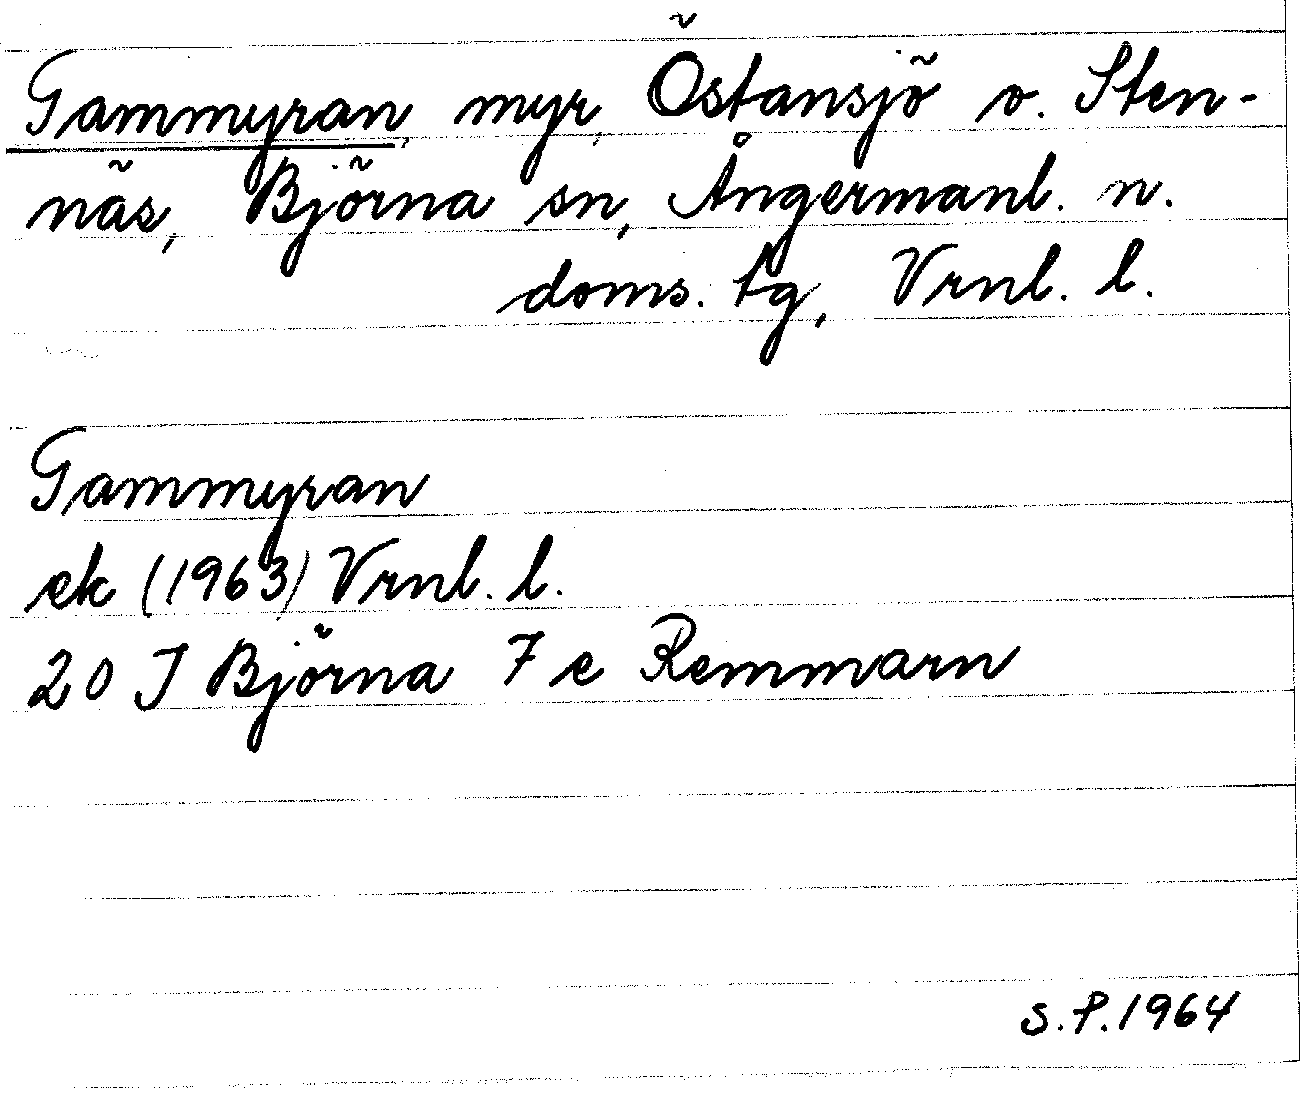 Gammyran, myr, Östansjö o. Sten-
näs, Björna sn, Ångermanl. n.
doms. tg, Vrnl. l.
Gammyran
ek (1963) Vrnl. l.
20 J Björna 7 e Remmarn
S.P. 1964